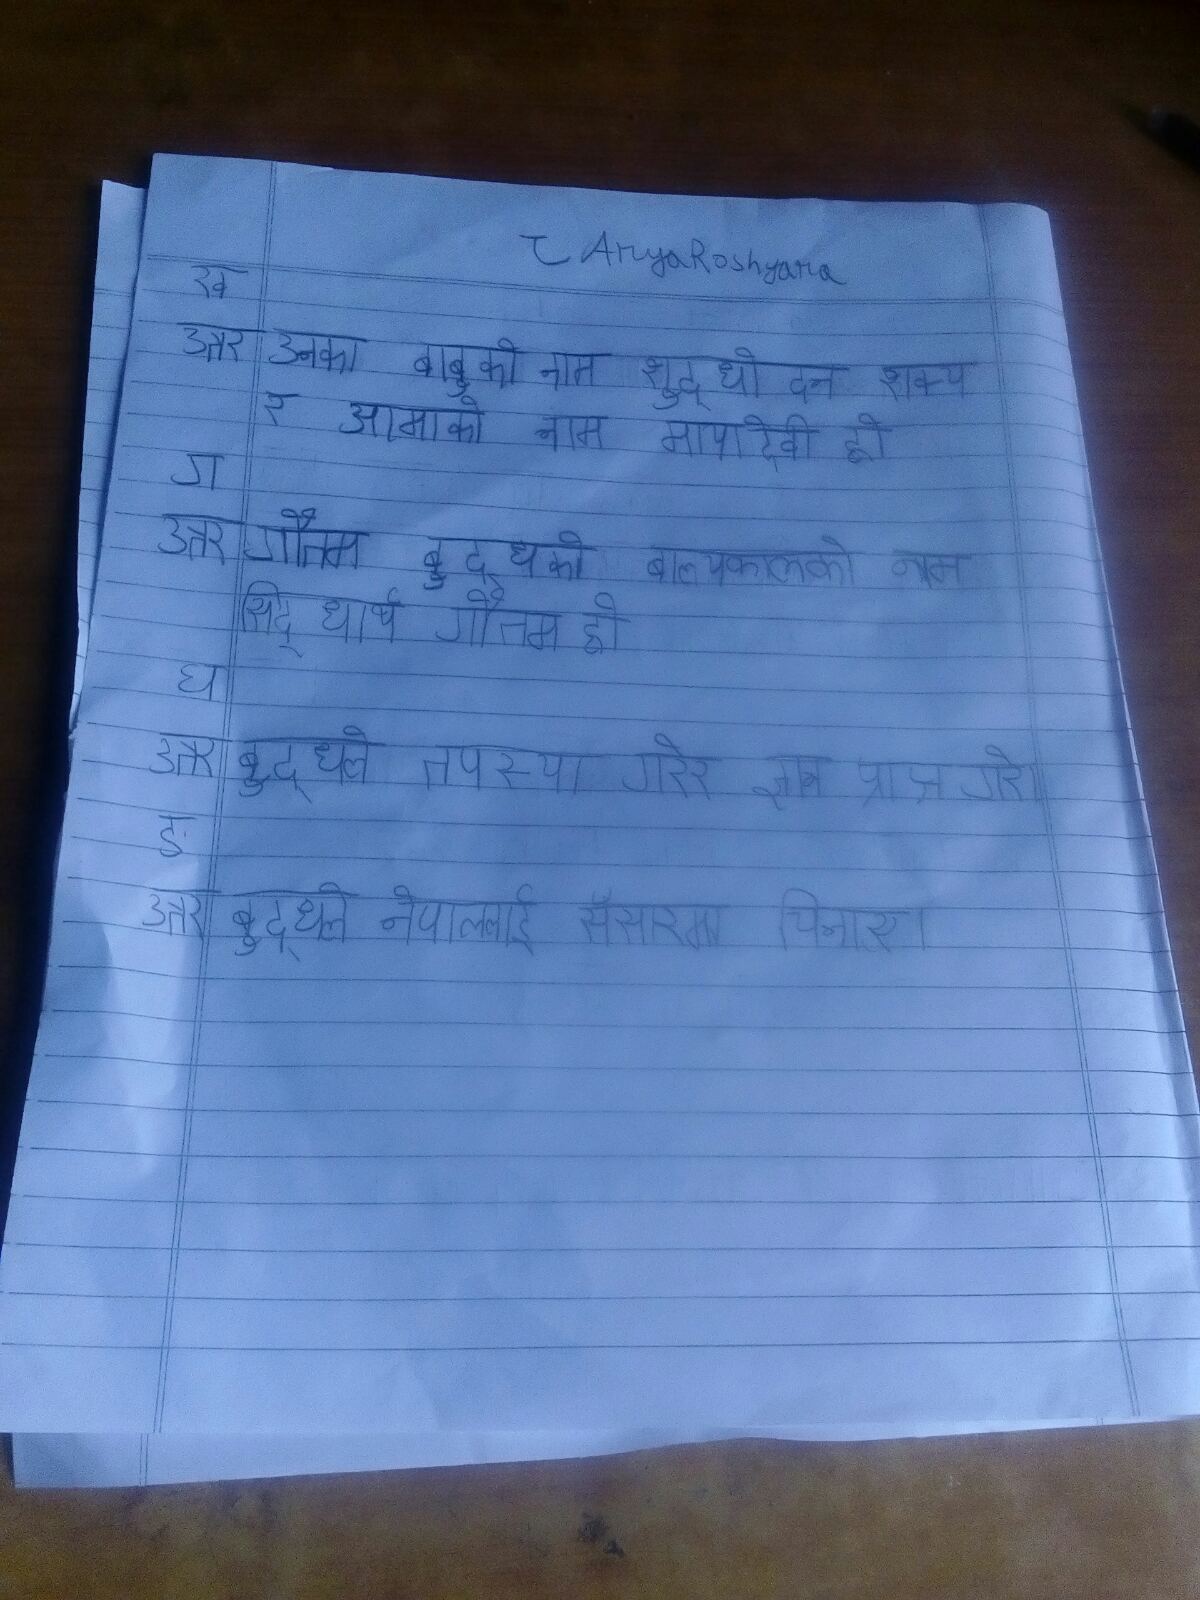 Arya Roshyara
ख
उत्तर उनका बाबुको नाम शुद्धोदन शक्य
र आमाको नाम मायादेवी हो
ग
उत्तर गौतम बुद्धको बाल्यकालको नाम
सिद्धार्थ गौतम हो
घ
उत्तर बुद्धले तपस्या गरेर ज्ञान प्राप्त गरे।
ङ
उत्तर बुद्धले नेपाललाई सँसारमा चिनाए।